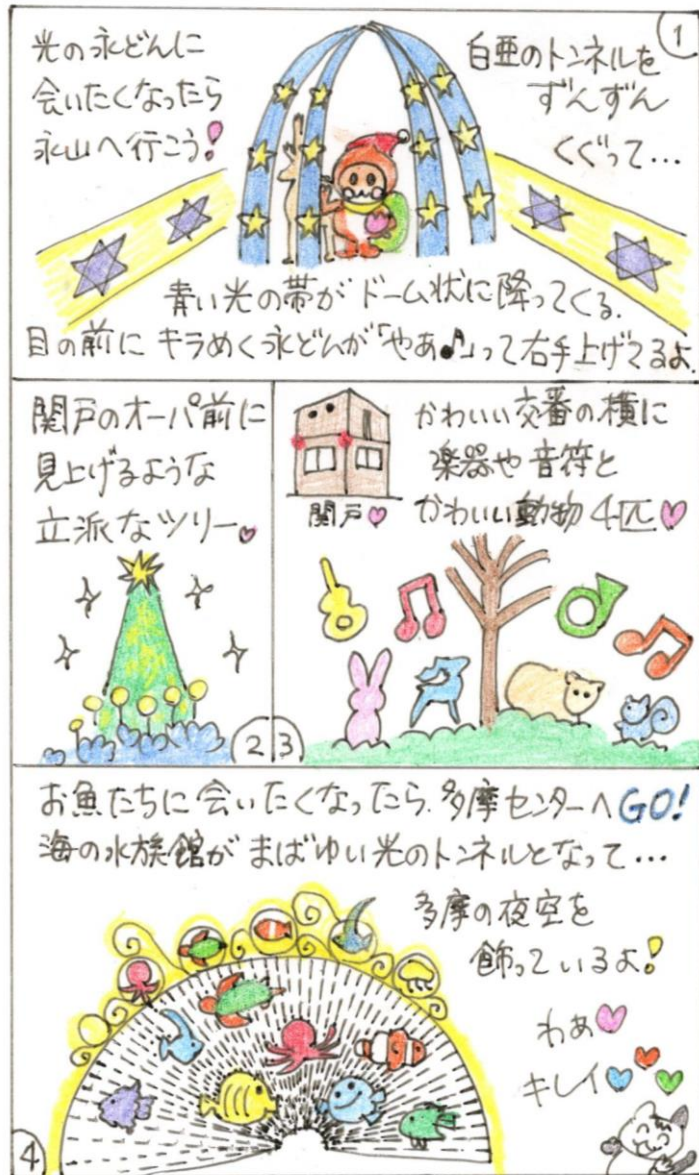 ①
光の永どんに
会いたくなったら
永山へ行こう!
白亜のトンネルを
ずんずん
くぐって…
青い光の帯がドーム状に降ってくる.
目の前にキラめく永どんが「やあ♪」って右手上げてるよ.
関戸のオーパ前に
見上げるような
立派なツリー♥
②
③
かわいい交番の横に
楽器や音符と
かわいい動物4匹♥
関戸♥
お魚たちに会いたくなったら.多摩センターへGO!
海の水族館がまばゆい光のトンネルとなって…
多摩の夜空を
飾っているよ!
わあ♥
キレイ♥♥♥
④